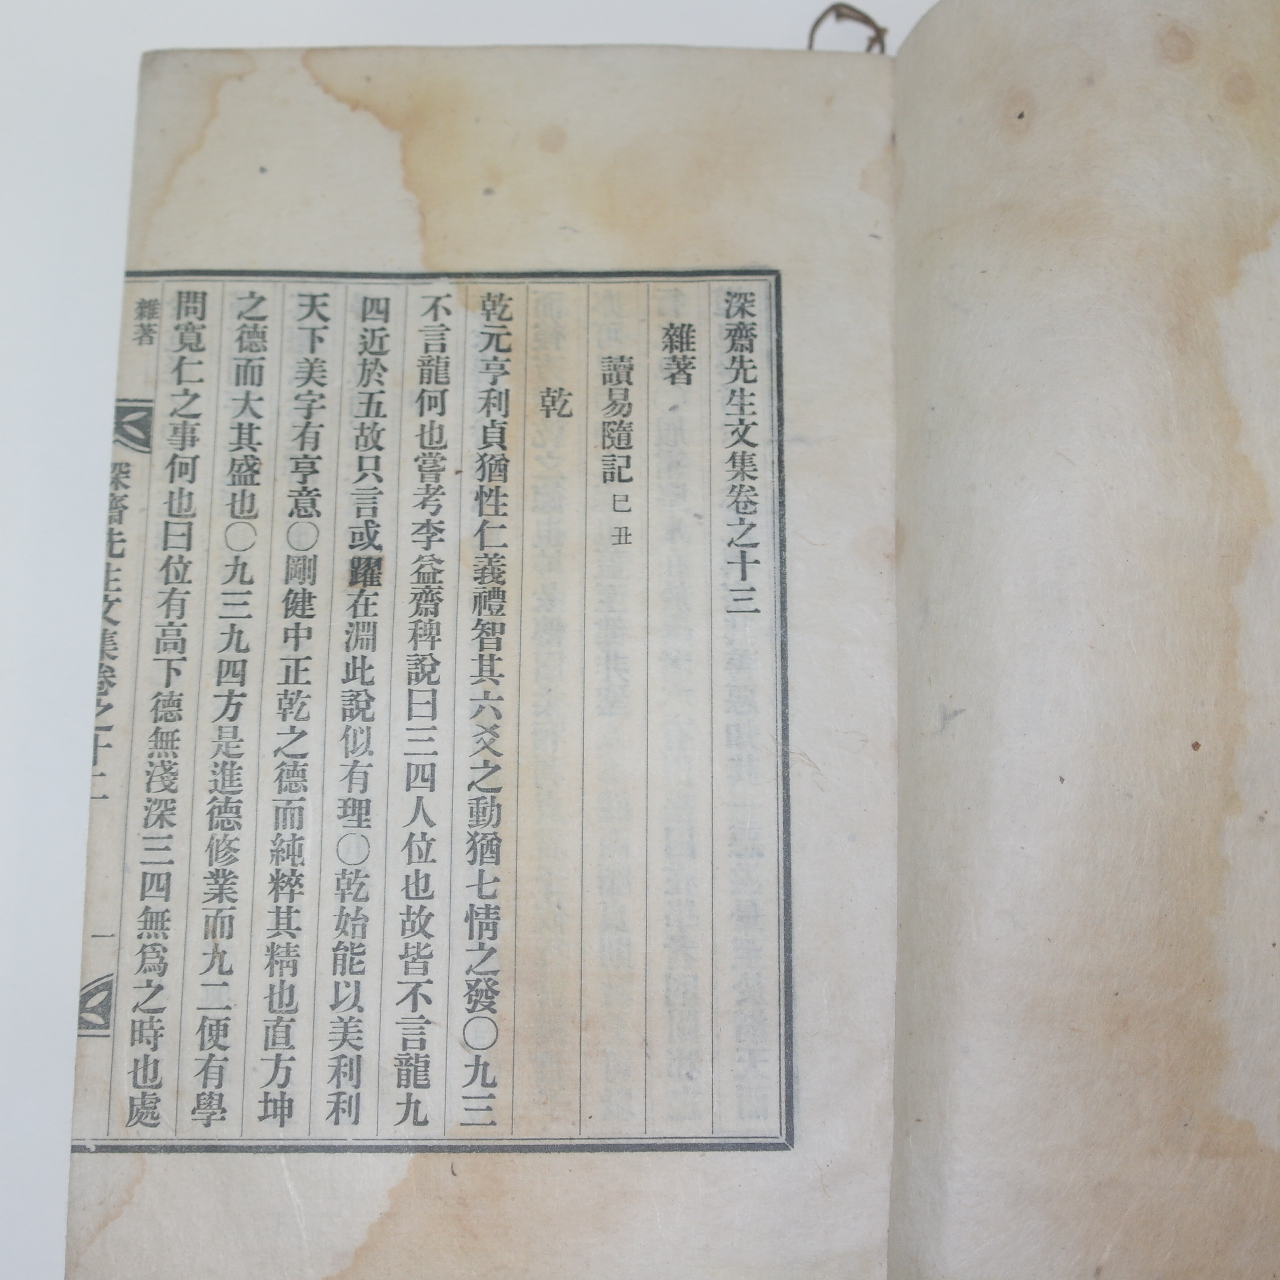 深齋先生文集卷之十三
雜著
讀易隨記 己丑
乾
乾元亨利貞猶性仁義禮智其六爻之動猶七情之發〇九三
不言龍何也嘗考李益齋稗說曰三四人位也故皆不言龍九
四近於五故只言或躍在淵此說似有理〇乾始能以美利利
天下美字有亨意〇剛健中正乾之德而純粹其精也直方坤
之德而大其盛也〇九三九四方是進德修業而九二便有學
問寬仁之事何也曰位有高下德無淺深三四無爲之時也處
雜著
深齋先生文集卷之十三
一